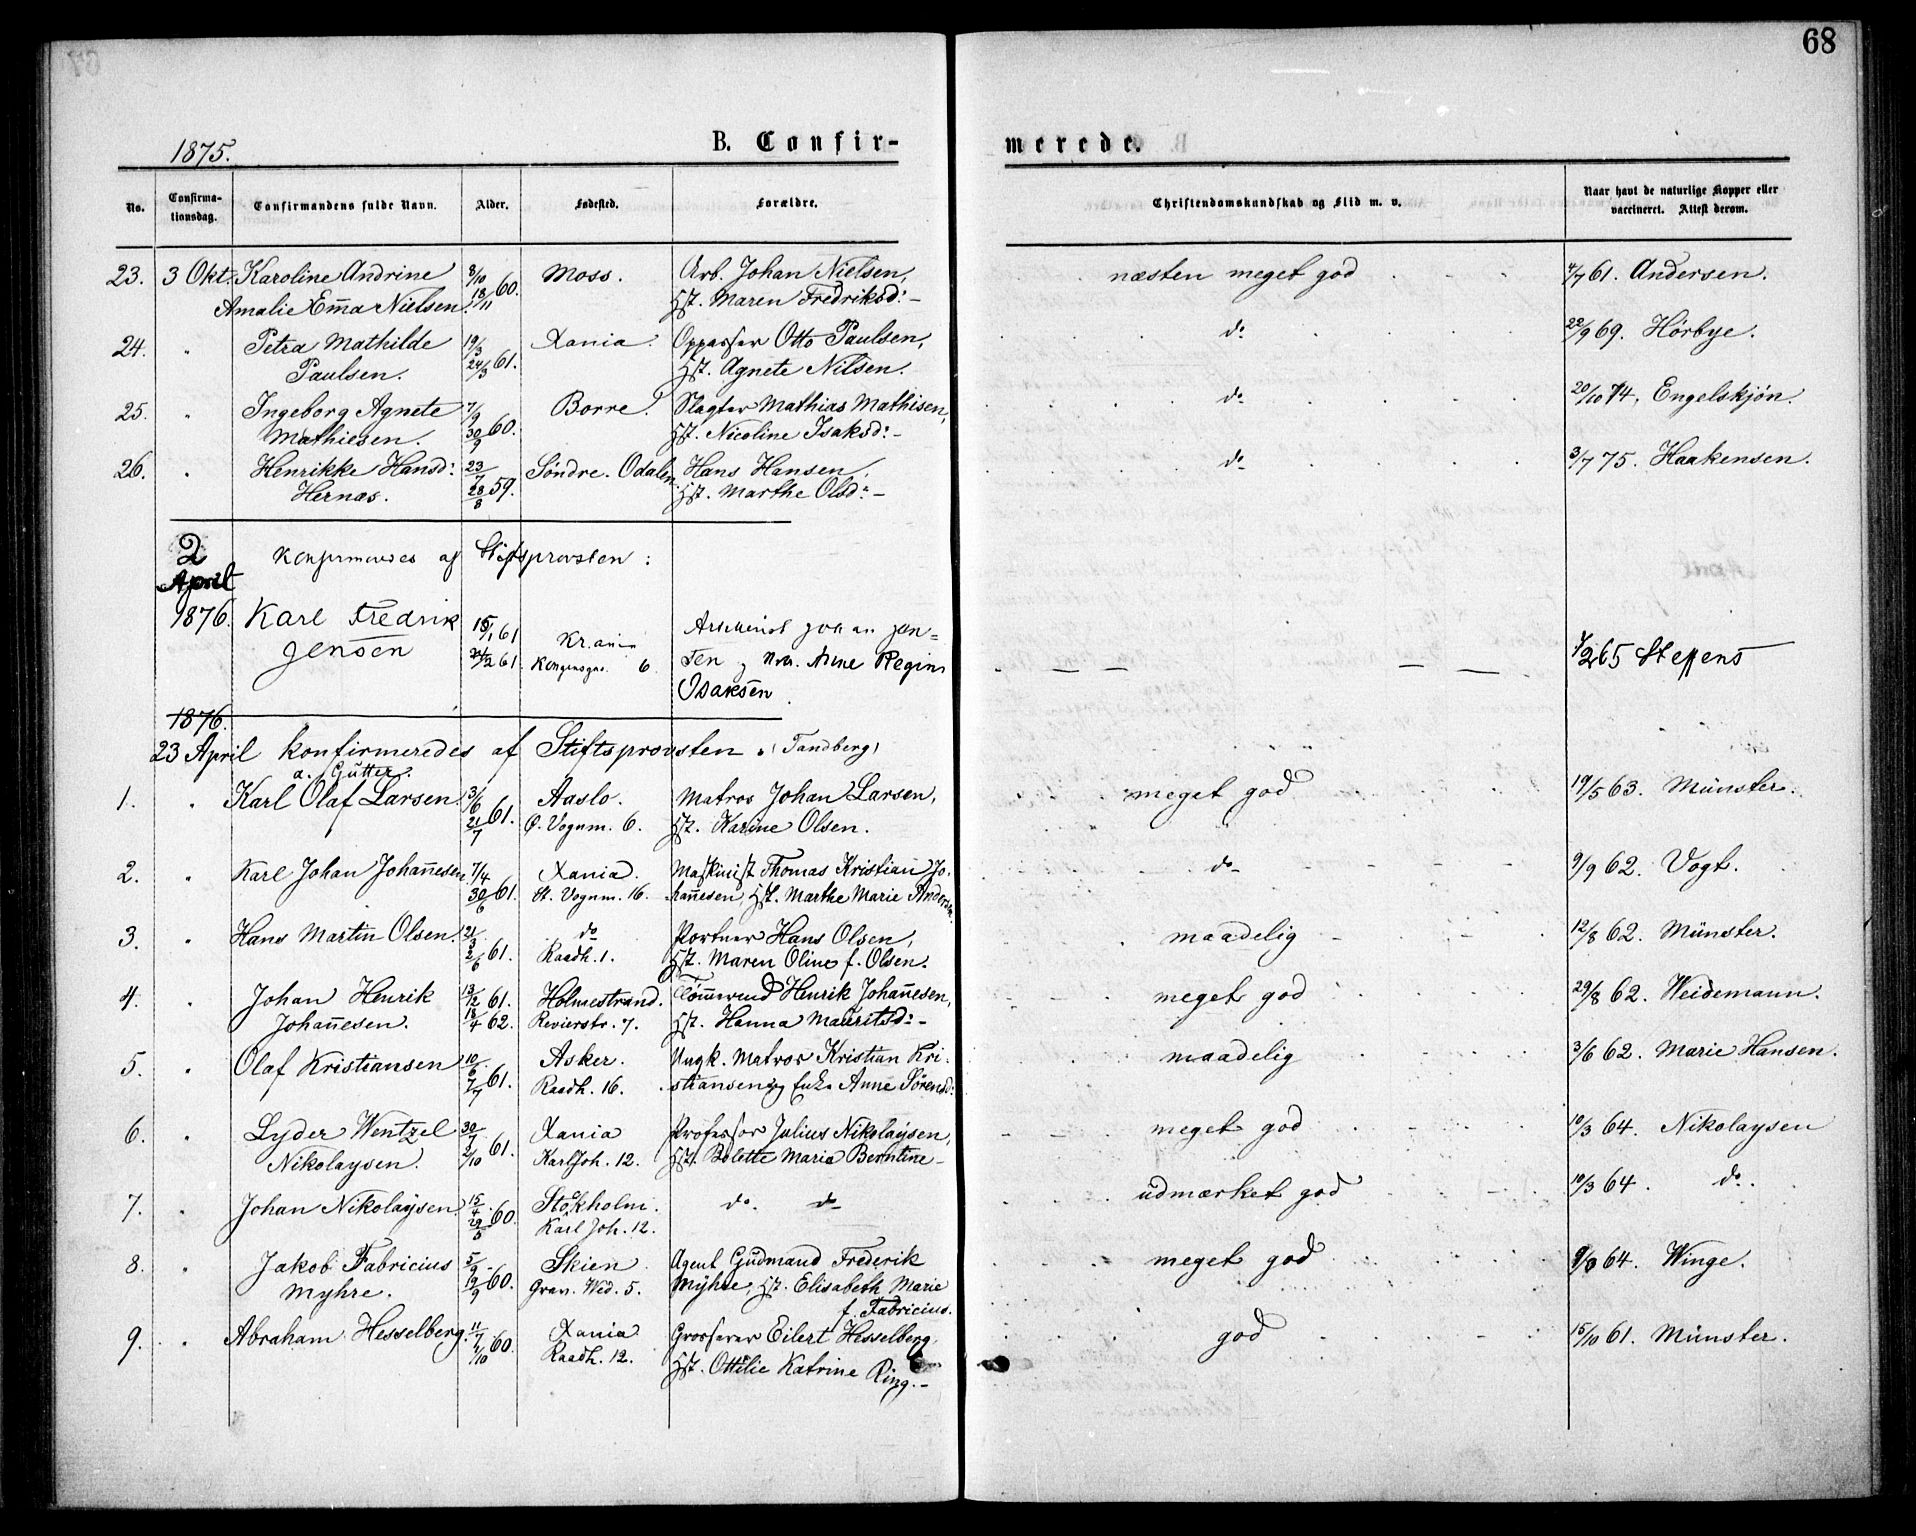 68
1875.
B. Confir-
merede.
No.
Confirma-
tionsdag.
Confirmandens fulde Navn.
Alder.
Fødested.
Forældre.
Christendomskundskab og Flid m. v.
Naar havt de naturlige Kopper eller
vaccineret. Attest derom.
23. 3 Okt. Karoline Andrine 8/10 60. Moss. Arb. Johan Nielsen, næsten meget god 4/7 61. Andersen.
Amalie Em̄a Nielsen. 13/11 Hst. Maren Fredriksd:-
24. " Petra Mathilde 19/3 61. Xania. Oppasser Otto Paulsen, do 22/9 69. Hørbye.
Paulsen. 24/3 Hst. Agnete Nilsen.
25. " Ingeborg Agnete 7/9 60. Borre. Slagter Mathias Mathisen, do 20/10 74. Engelskjøn.
Mathiesen. 30/9 Hst. Nicoline Isaksd:-
26. " Henrikke Hansd: 23/7 59. Søndre. Odalen. Hans Hansen, do 3/7 75. Haakensen.
Hernæs. 28/8 Hst. Marthe Olsd:-
2 Konfirmeredes af Stiftsprovsten:
April
1876. Karl Fredrik 15/1 61 Kr.ania
Jensen 61. Kongensg. 6. Jen=
sen og Anne Regine
Isaksen.
2 65 Steffens
1876.
23 April konfirmeredes af Stiftsprovsten (Tandberg)
a. Gutter.
1. " Karl Olaf Larsen. 3/6 61. Aaslo. Matros Johan Larsen, meget god 19/5 63. Münster.
21/7 Ø. Vognm. 6. Hst. Karine Olsen.
2. " Karl Johan Johan̄esen 7/4 61. Xania. Maskinist Thomas Kristian Jo- do 9/9 62. Vogt.
30/6 St. Vognm. 16. han̄esen, Hst. Marthe Marie Andersen.
3. " Hans Martin Olsen. 21/3 61. do Portner Hans Olsen, maadelig 12/8 62. Münster.
2/6 Raadh. 1. Hst. Maren Oline f. Olsen.
4. " Johan Henrik 13/2 61. Holmestrand. Tøm̄erm̄d Henrik Johan̄esen, meget god 29/8 62. Weidemann.
Johan̄esen. 18/4 62. Revierstr. 7. Hst. Hanna Mauritsd:-
5. " Olaf Kristiansen 10/6 61. Asker. Ungk. Matros Kristian Kri- maadelig 3/6 62. Marie Hansen.
7/7 Raadh. 16. stiansen og Enke Anne Sørensd:
6. " Lyder Wentzel 30/7 61. Xania Professor Julius Nikolaysen, meget god 10/3 64. Nikolaysen
Nikolaysen. 2/10 Karl Joh. 12. Hst. Bolette Maria Berntine-
7. " Johan Nikolaysen 15/4 60. Stokholm. do. do udmærket god 10/3 64. do.
29/5 Karl Joh. 12.
8. " Jakob Fabricius 5/9 60. Skien. Agent Gudmand Frederik meget god 64. Winge.
Myhre. 19/9 Græn. Wed. 5. Myhre, Hst. Elisabeth Marie
f. Fabricius.
9. " Abraham Hesselberg. 11/7 60. Xania Grosserer Eilert Hesselberg god 15/10 61. Münster.
7/10 Raadh. 12. Hst. Ottilie Katrine Ring.-